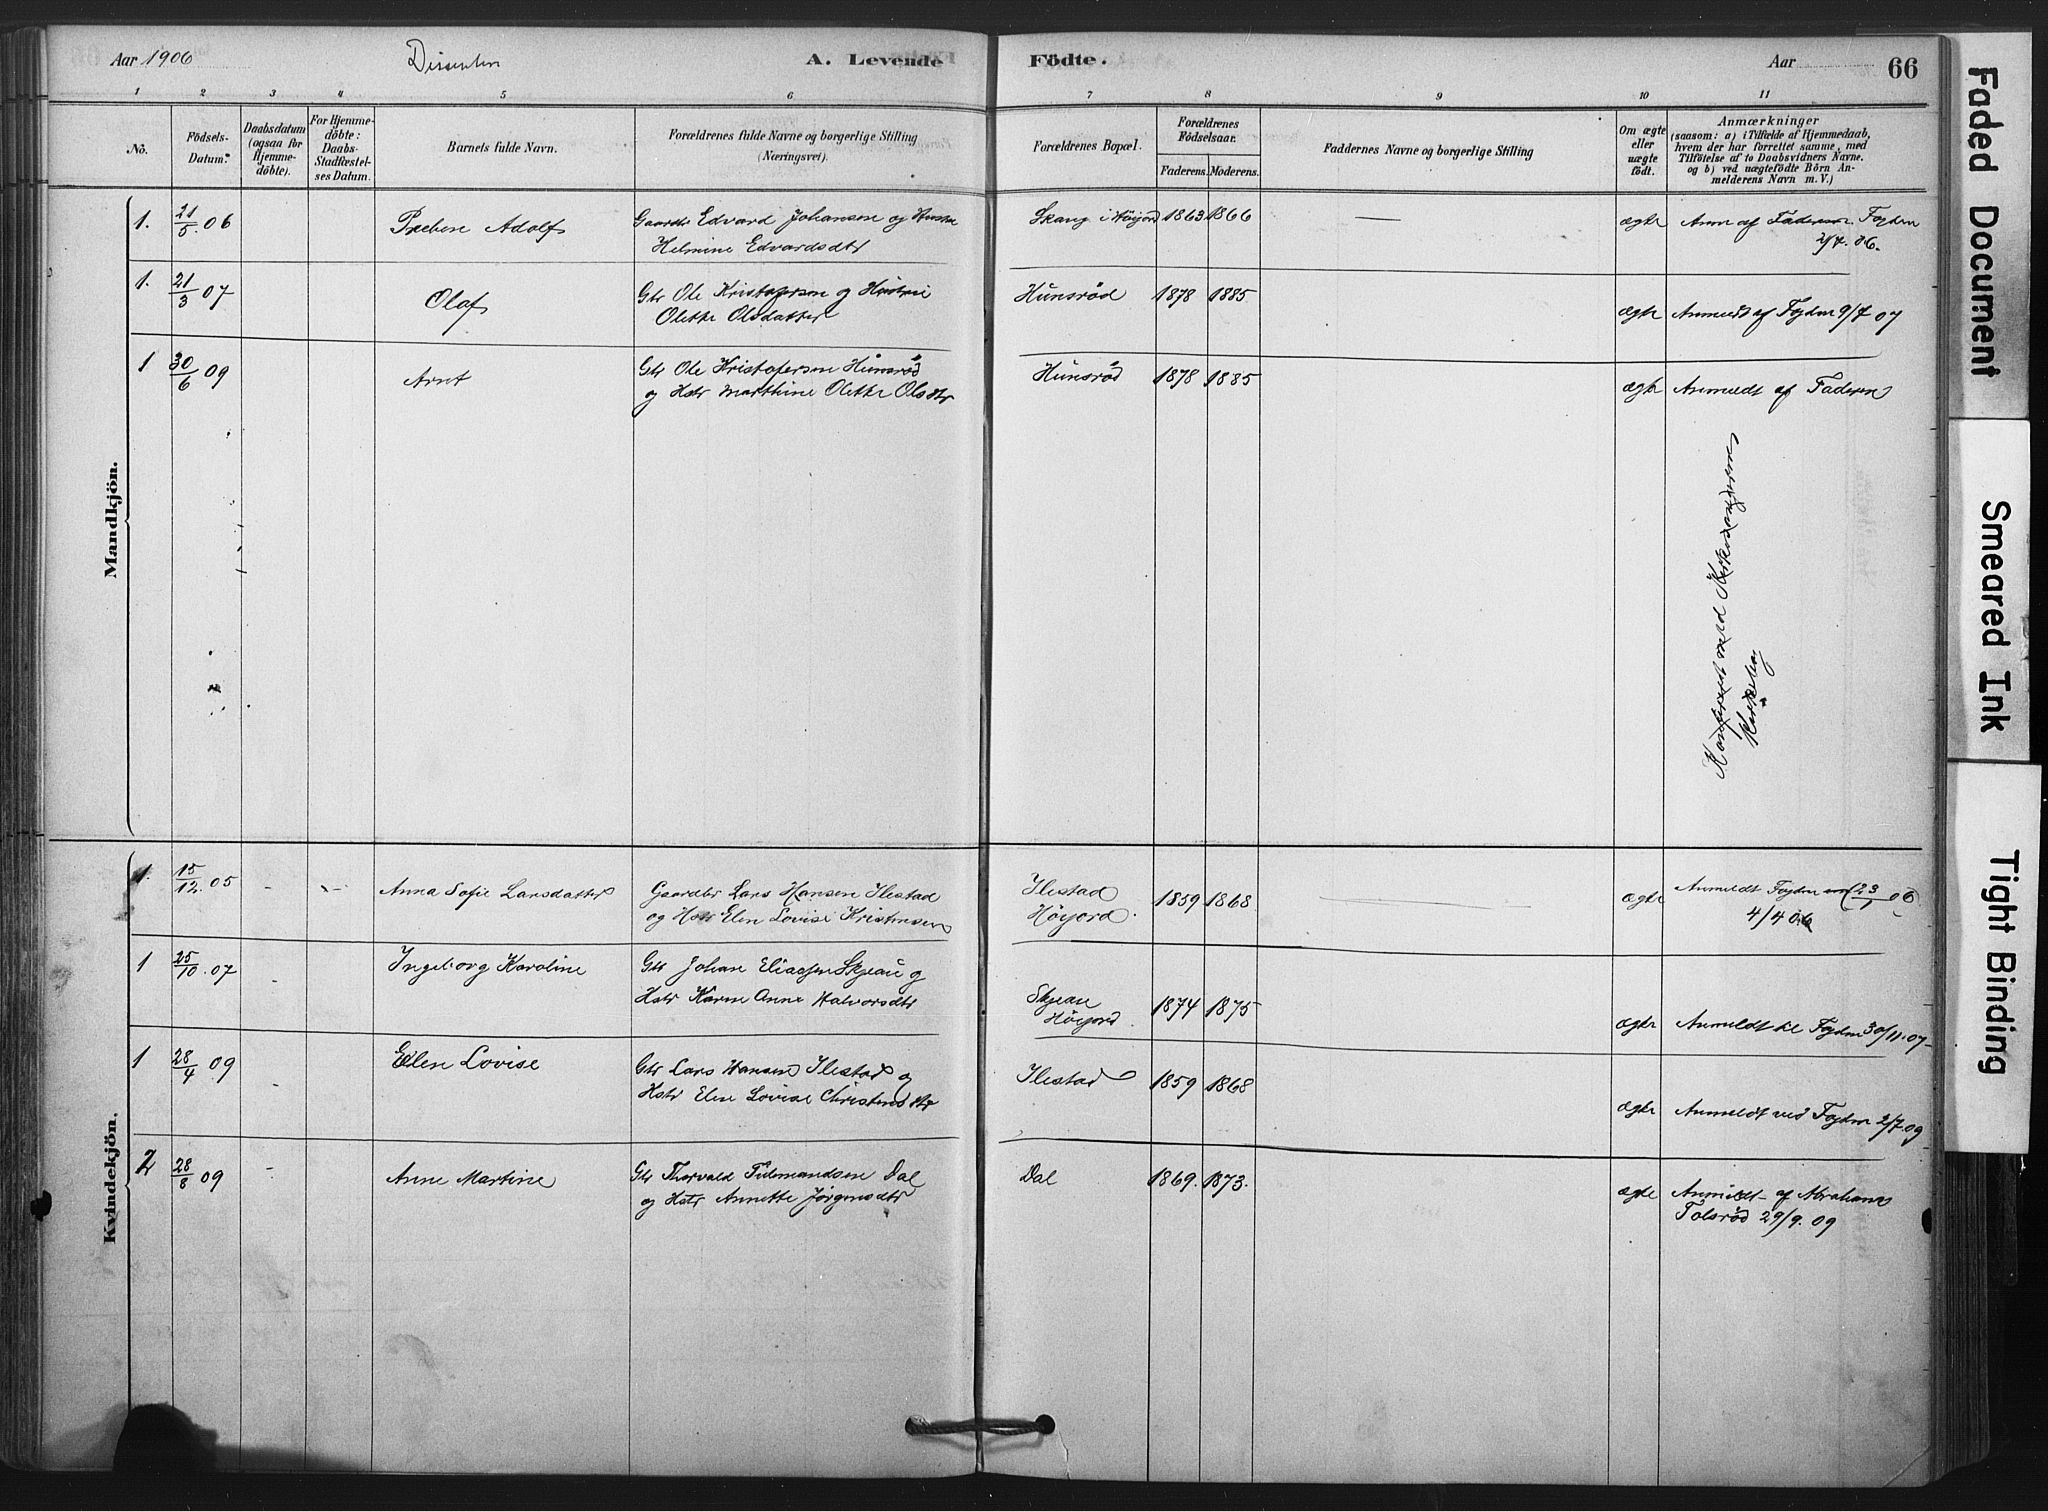 Aar 1906
Dissenter
A. Levende
Födte.
Aar
66
1 2 3 4 5 6 7 8 9 10 11
No.
Födsels-Datum.
Daabsdatum (ogsaa for Hjemmedöbte).
For Hjemmedöbte: Daabs-Stadfæstelses Datum.
Barnets fulde Navn.
Forældrenes fulde Navne og borgerlige Stilling (Næringsvei).
Forældrenes Bopæl.
Forældrenes Födselsaar.
Faderens. Moderens.
Faddernes Navne og borgerlige Stilling
Om ægte eller uægte födt.
Anmærkninger
(saasom: a) i Tilfælde af Hjemmedaab,
hvem der har forrettet samme, med
Tilföielse af to Daabsvidners Navne.
og b) ved uægtefödte Börn An-
melderens Navn m. V.)
Mandkjön.
1. 21/5. 06 Preben Adolf Gaardbr Edvard Johansen og Hustru
Helmine Edvardsdtr
Skaug i Höijord 1863 1866 — ægte Anm af Faderen Fogden
2/7. 06.
1. 21/3 07 Olaf Gbr Ole Kristofersen og Hustru
Olette Olsdatter
Hunsröd 1878 1885 ægte Anmeldt af Fogden 9/7 07
1 30/6 09 Arnt Gbr Ole Kristofersen Hunsröd
og Hstr Marthine Olette Olsdtr
Hunsröd 1878 1885 ægte Anmeldt af Faderen
Konfereret med Kirkesangerens
Kvindekjön.
1. 15/12. 05 - - Anna Sofie Larsdatter Gaardbr Lars Hansen Ilestad
og Hstr Elen Lovise Kristensen
Ilestad
Höijord. 1859 1868 ægte Anmeldt Fogden 23/1 06
4/4 06
1 25/10. 07 Ingeborg Karoline Gbr Johan Eliassen Skjeau og
Hstr Karen Anne Halvorsdtr
Skjeau
Höijord. 1874 1875 ægte Anmeldt til Fogden 30/11. 07-
1 28/4 09 Elen Lovise Gbr Lars Hansen Ilestad og
Hstr Elen Lovise Christensdtr
Ilestad 1859 1868 ægte Anmeldt ved Fogden 2/7. 09
2 28/8 09 Anne Martine Gbr Thorvald Tidemandsen Dal
og Hstr Annette Jörgensdtr
Dal 1869. 1873. ægte Anmeldt af Abraham
Tolsröd 29/9. 09
Faded Document
Smeared Ink
Tight Binding